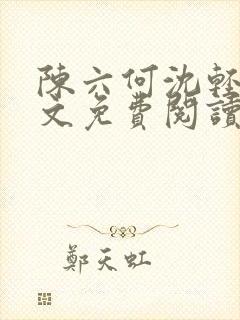 陳六何沈輕
文免費閱讀
鄭天虹